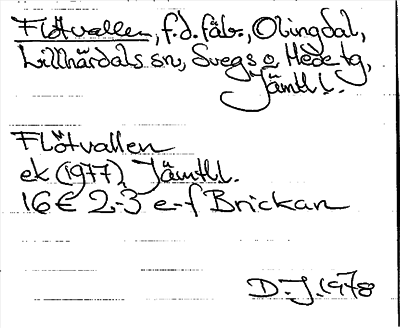 Flötvallen, f.d. fäb., Olingdal,
Lillhärdals sn, Svegs o Hede tg,
Jämtl l.
Flötvallen
ek (1977) Jämtl l.
16E 2-3 e-f Brickan
D.J. 1978